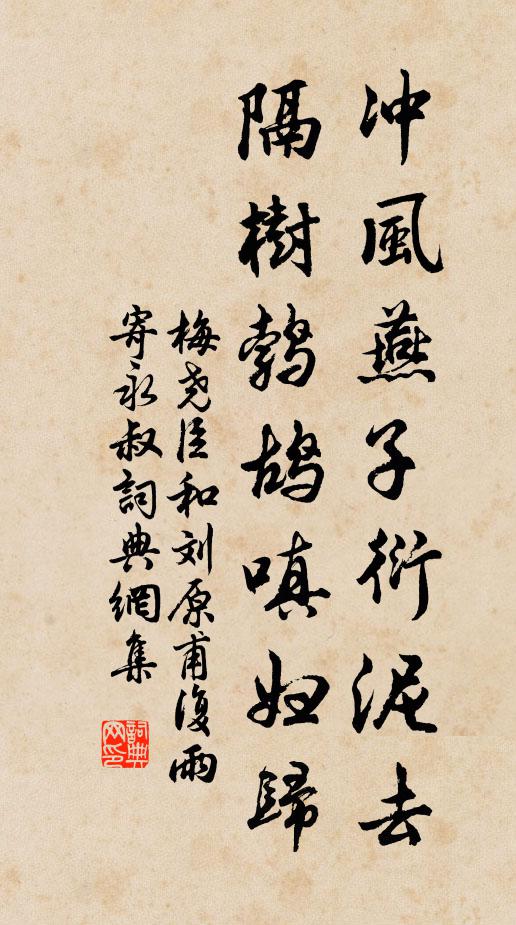 冲風燕子衍泥去
隔樹鹁鸪嗔妇歸
梅尧臣和刘原甫復雨
寄永叔詞典網集
詞典网印